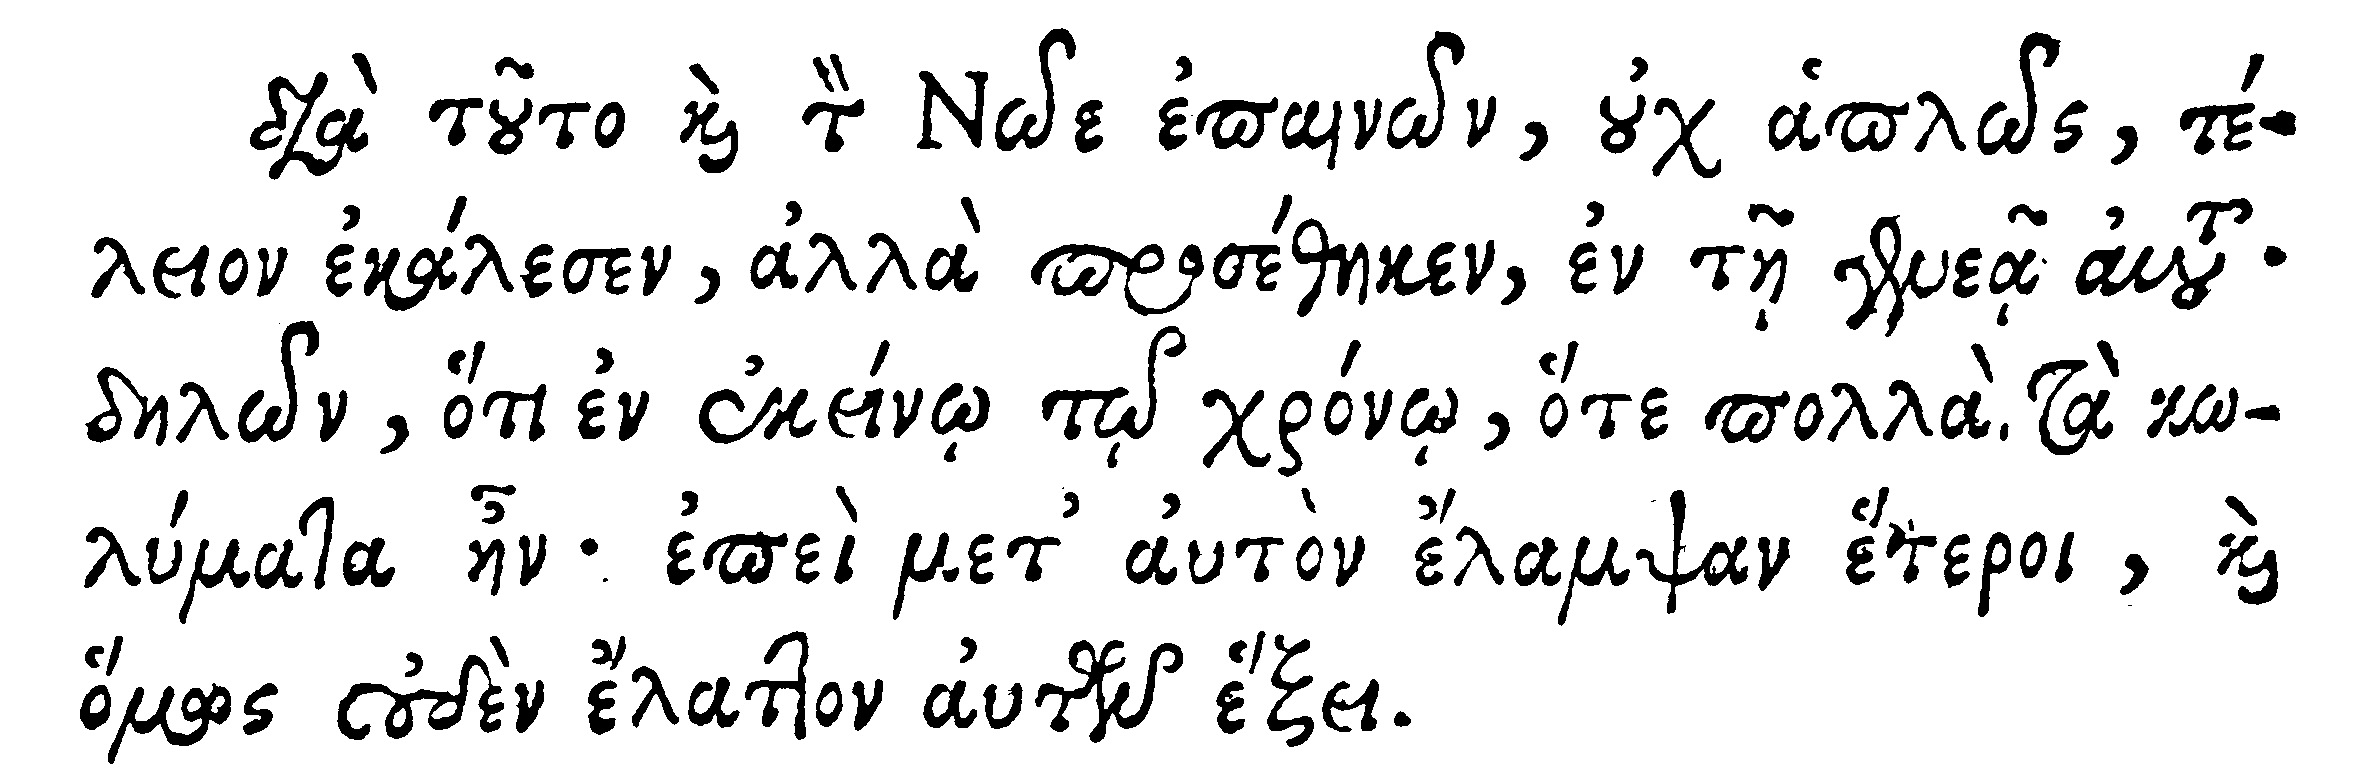 διὰ τοῦτο καὶ τὸν Νῶε ἐπαινῶν, οὐχ ἁπλῶς, τέ-
λειον ἐκάλεσεν, ἀλλὰ προσέθηκεν, ἐν τῇ γενεᾷ αὐτοῦ·
δηλῶν, ὅτι ἐν ἐκείνῳ τῷ χρόνῳ, ὅτε πολλὰ τὰ κω-
λύματα ἦν· ἐπεὶ μετ' αὐτὸν ἔλαμψαν ἕτεροι, καὶ
ὅμως οὐδὲν ἔλαττον αὐτῶν ἕξει.